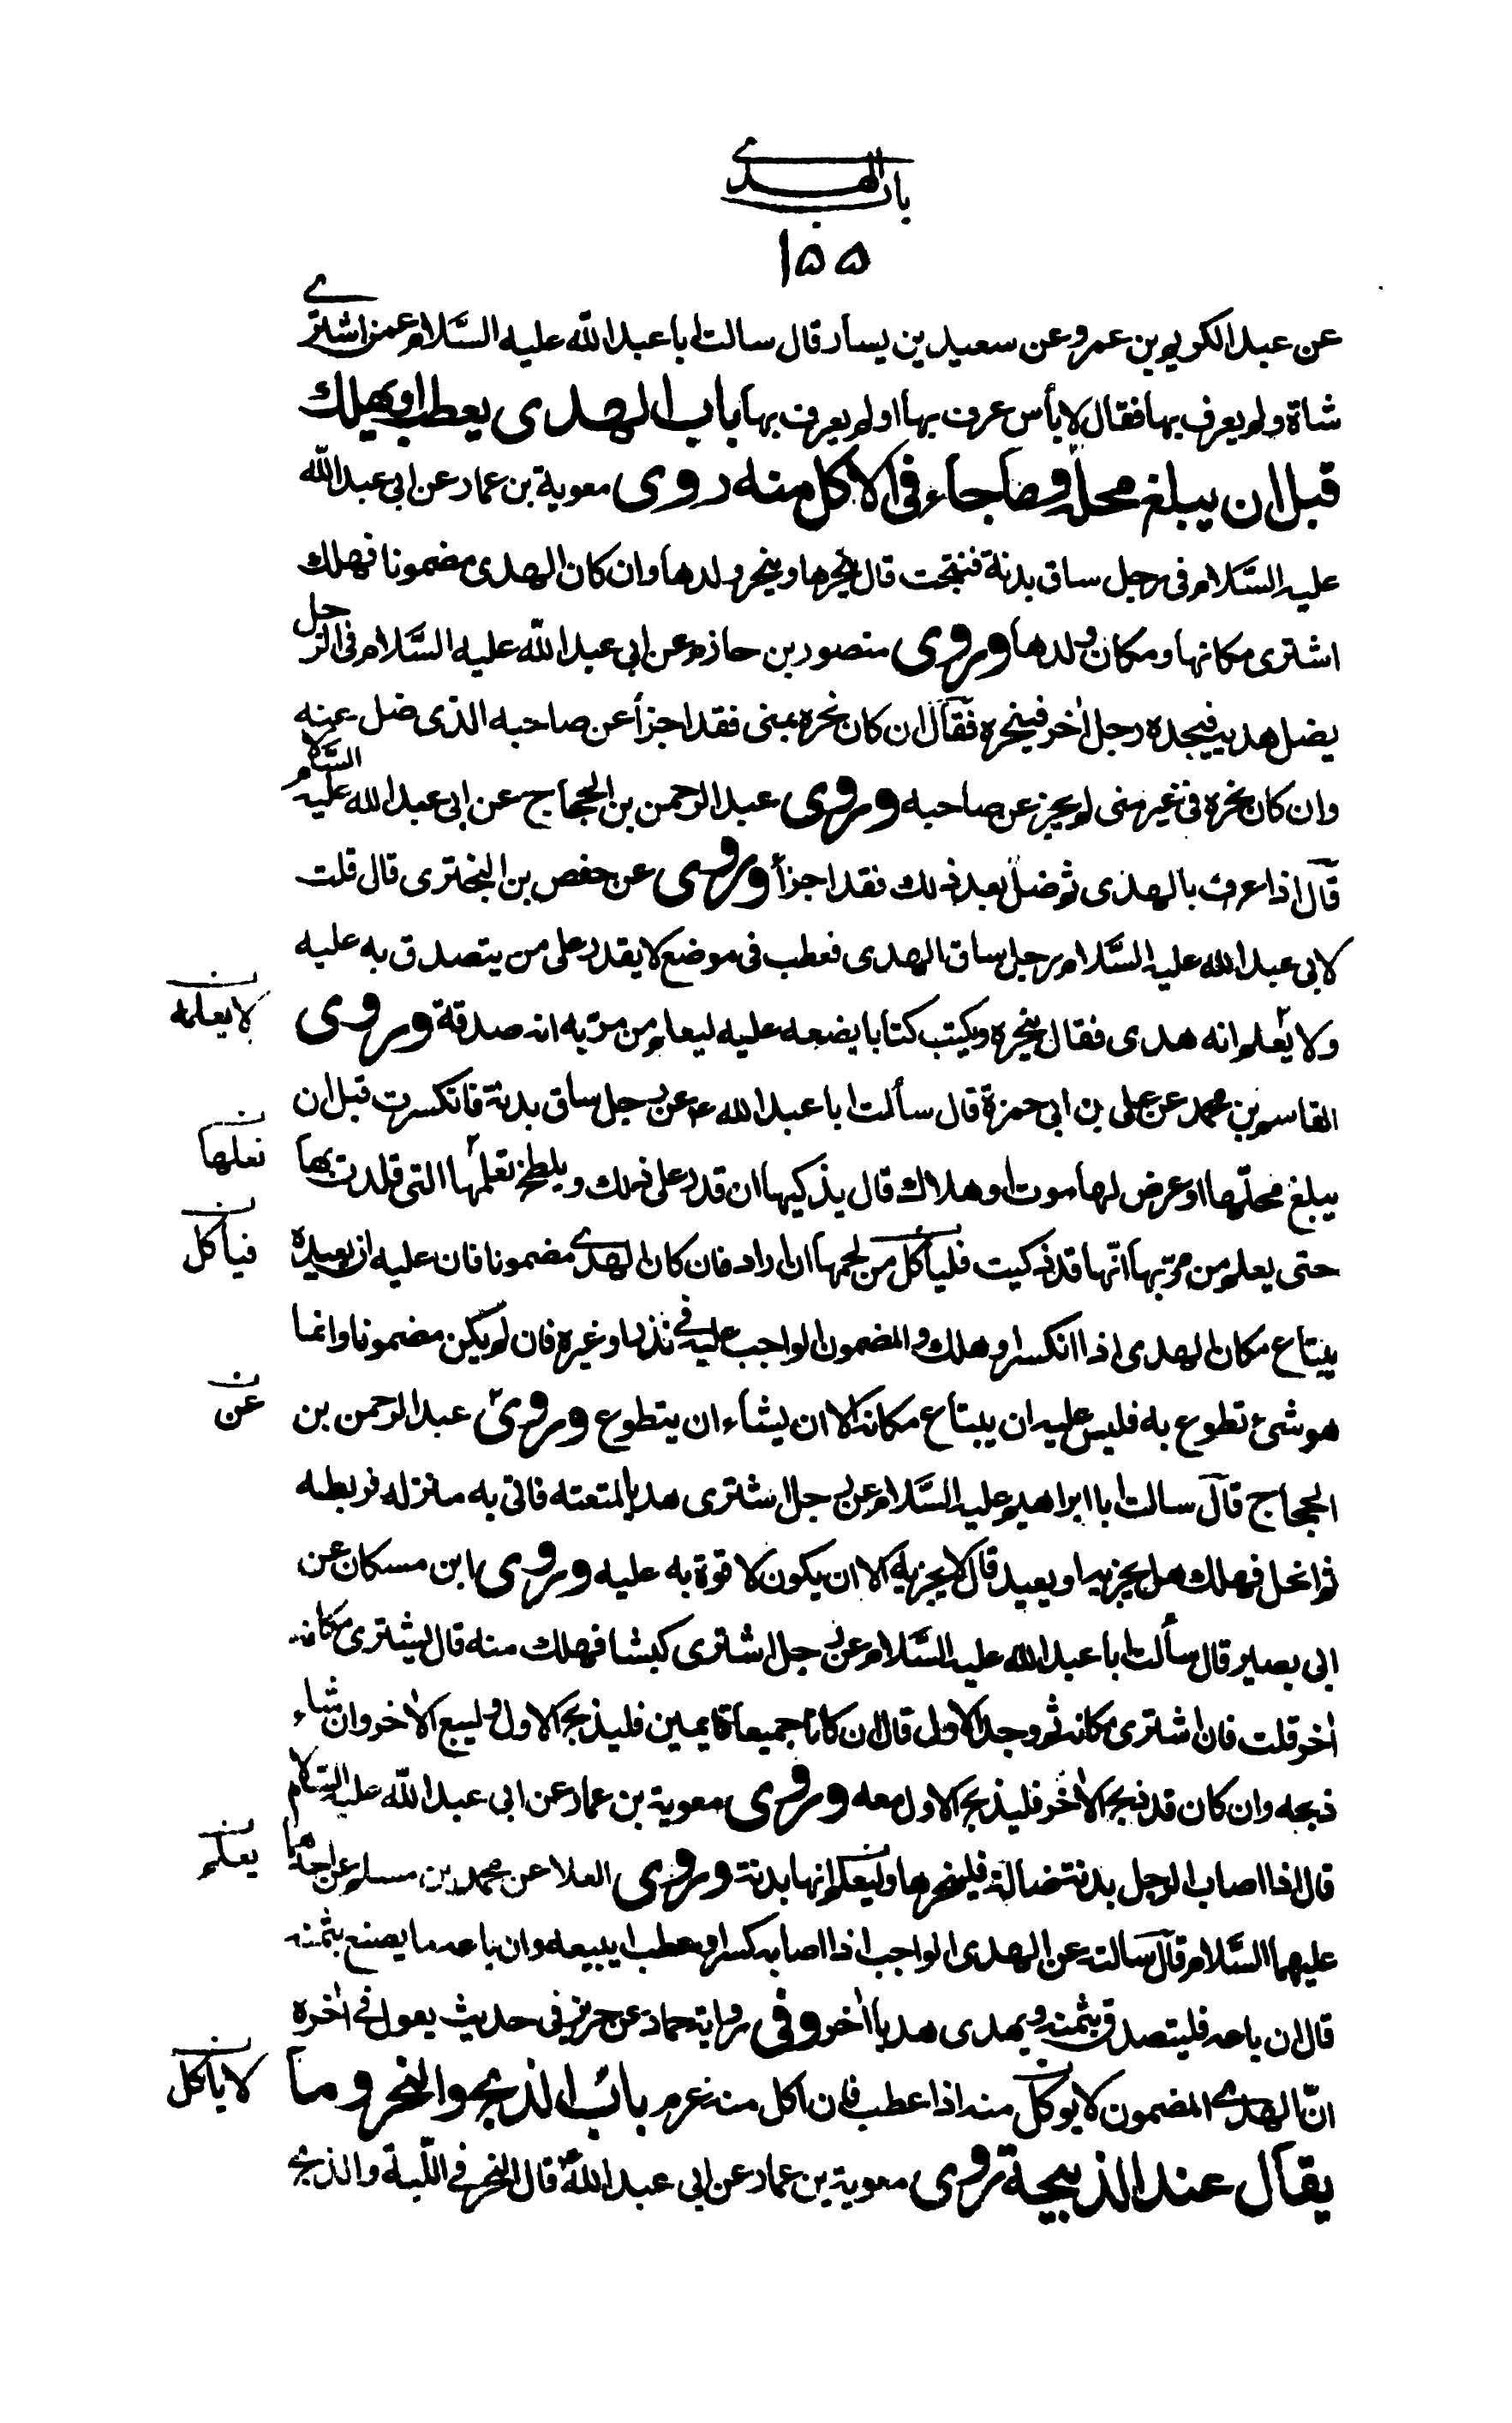 باب الهدی
۱۵۵
عن عبد الکریم بن عمرو عن سعید بن یسار قال سالت ابا عبد الله علیه السَّلام عمن اشتری
شاة ولم یعرف بها فقال لا بأس عرف بها او لم یعرف بها باب الهدی یعطب او یهلك
قبل ان یبلغ محلّه وما جاء فی الاکل منه روی معویة بن عمار عن ابی عبد الله
علیه السَّلام فی رجل ساق بدنة فنتجت قال ینحرها وینحر ولدها وان کان الهدی مضمونا فهلك
اشتری مکانها ومکان ولدها وروی منصور بن حازم عن ابی عبد الله علیه السَّلام فی الرّجل
یضل هدیه فیجده رجل اٰخر فینحره فقال ان کان نحره بمنی فقد اجزأ عن صاحبه الذی ضل عنه
وان کان نحره فی غیر منی لم یجز عن صاحبه وروی عبد الرحمن بن الحجاج عن ابی عبد الله علیه السَّلام
قال اذا عرف بالهدی ثم ضل بعد ذلك فقد اجزأ وروی عن حفص بن البختری قال قلت
لابی عبد الله علیه السَّلام رجل ساق الهدی فعطب فی موضع لا یقدر علی من یتصدق به علیه
ولا یعلم انه هدی فقال ینحره ویکتب کتابا یضعه علیه لیعلم من مرّ به انه صدقة وروی
لا یعلمه
القاسم بن محمد عن علی بن ابی حمزة قال سألت ابا عبد الله ع عن رجل ساق بدنة فانکسرت قبل ان
یبلغ محلّها او عرض لها موت او هلاك قال یذکیها ان قدر علی ذلك ویلطخ نعلها التی قلدت بها
نعلها
حتی یعلم من مرّ بها انّها قد ذکیت فلیأکل من لحمها ان اراد فان کان الهدی مضمونا فان علیه ان یعیده
فیأکل
یبتاع مکان الهدی اذا انکسر او هلك والمضمون الواجب علیه فی نذر او غیره فان لم یکن مضمونا وانما
هو شیء تطوع به فلیس علیه ان یبتاع مکانه الا ان یشاء ان یتطوع وروی عبد الرحمن بن
عن
الحجاج قال سالت ابا ابراهیم علیه السَّلام عن رجل اشتری هدیا لمتعته فاتی به منزله فربطه
ثم انحل فهلك هل یجزیه او یعید قال لا یجزیه الا ان یکون لا قوة به علیه وروی ابن مسکان عن
ابی بصیر قال سألت ابا عبد الله علیه السَّلام عن رجل اشتری کبشا فهلك منه قال یشتری مکانه
اٰخر قلت فان اشتری مکانه ثم وجد الاول قال ان کانا جمیعا قایمین فلیذبح الاول ولیبع الاٰخر وان شاء
ذبحه وان کان قد ذبح الاٰخر فلیذبح الاول معه وروی معویة بن عمار عن ابی عبد الله علیه السَّلام
قال اذا اصاب الرجل بدنة ضالة فلینحرها ولیعلم انها بدنة وروی العلا عن محمد بن مسلم عن احدهما
یعلم
علیهما السَّلام قال سالته عن الهدی الواجب اذا اصابه کسر او عطب ایبیعه وان باعه ما یصنع بثمنه
قال ان باعه فلیتصدق بثمنه ویهدی هدیا اٰخر وفی روایة حماد عن حریز فی حدیث یقول فی اٰخره
انّ الهدی المضمون لا یؤکل منه اذا عطب فان اکل منه غرم باب الذبح والنحر وما
لا یأکل
یقال عند الذبیحة روی معویة بن عمار عن ابی عبد الله ع قال النحر فی اللّبة والذبح